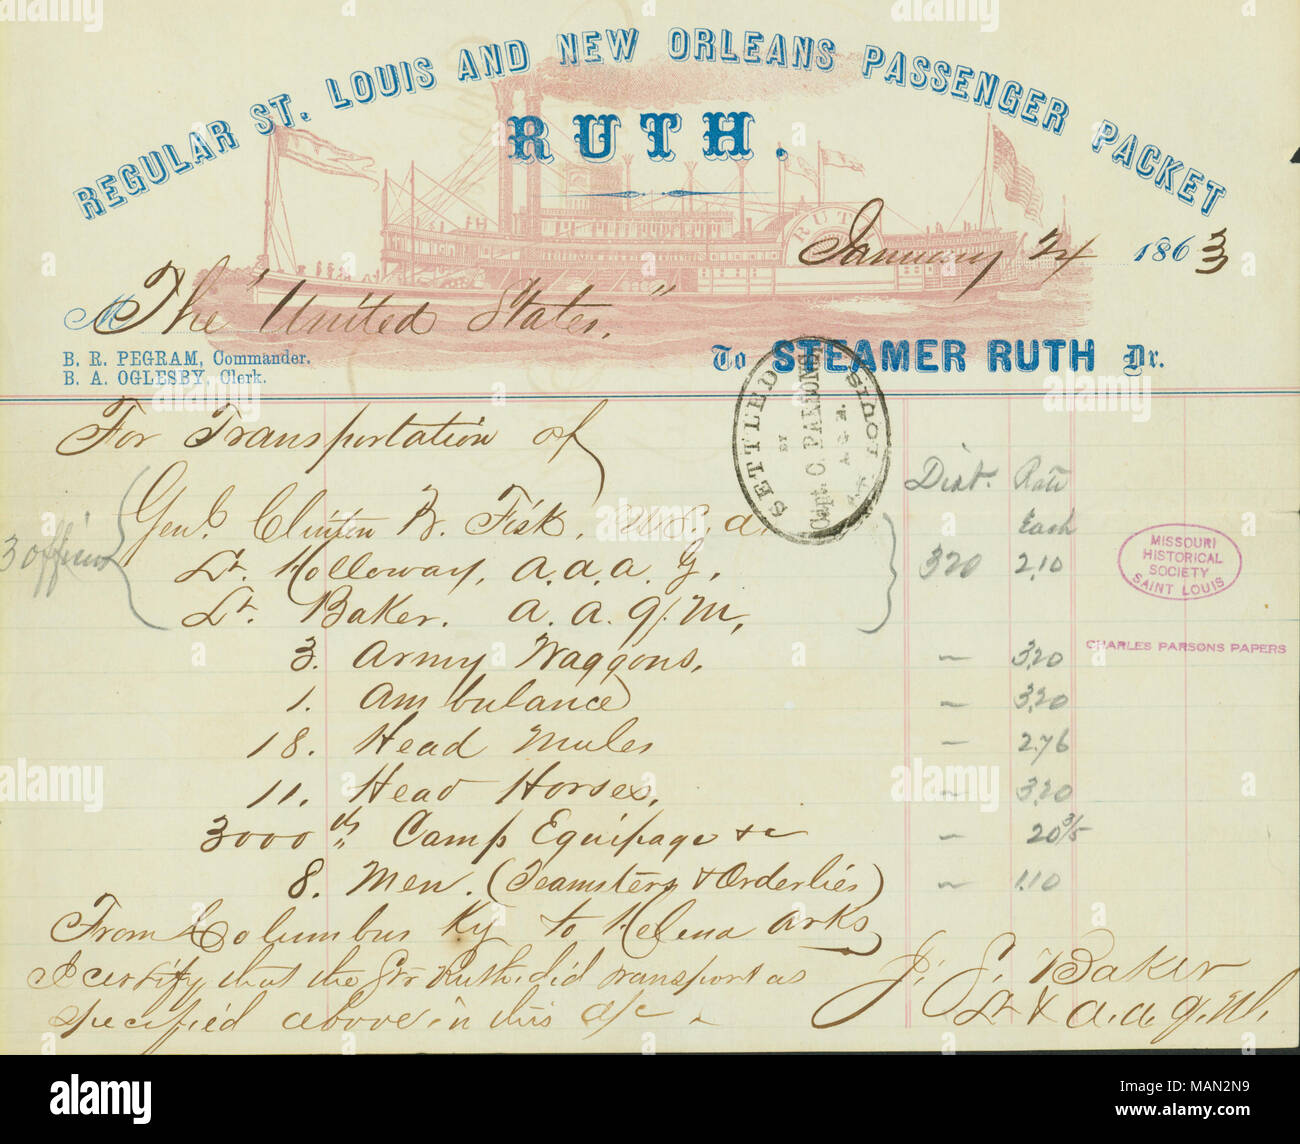 REGULAR ST. LOUIS AND NEW ORLEANS PASSENGER PACKET
RUTH.
RUTH
January 24 1863
M The "United States,"
B. R. PEGRAM, Commander.
B. A. OGLESBY, Clerk.
To STEAMER RUTH Dr.
SETTLED
BY
Capt. C. PARSONS,
A. Q. M.
ST LOUIS
For Transportation of
Dist. Rate
Each
3 officers
Genl. Clinton B. Fisk,
Lt. Holloway, a.a.a. G. 320 2,10
Lt. Baker. a. a. q. m,
3. Army Waggons. " 3,20
1. Ambulance " 3,20
18. Head Mules " 2.76
11. Head Horses, " 3,20
3000 lbs Camp Equipage &c " 20 3/5
8. Men. (Teamsters & Orderlies) " 1.10
From Columbus Ky to Helena Arks
I certify that the Str Ruth did transport as
specified above in this a/c.
J. S. Baker
Lt & a. a. q. M.
MISSOURI
HISTORICAL
SOCIETY
SAINT LOUIS
CHARLES PARSONS PAPERS
alamy
alamy
alamy
Image ID: MAN2N9
www.alamy.com